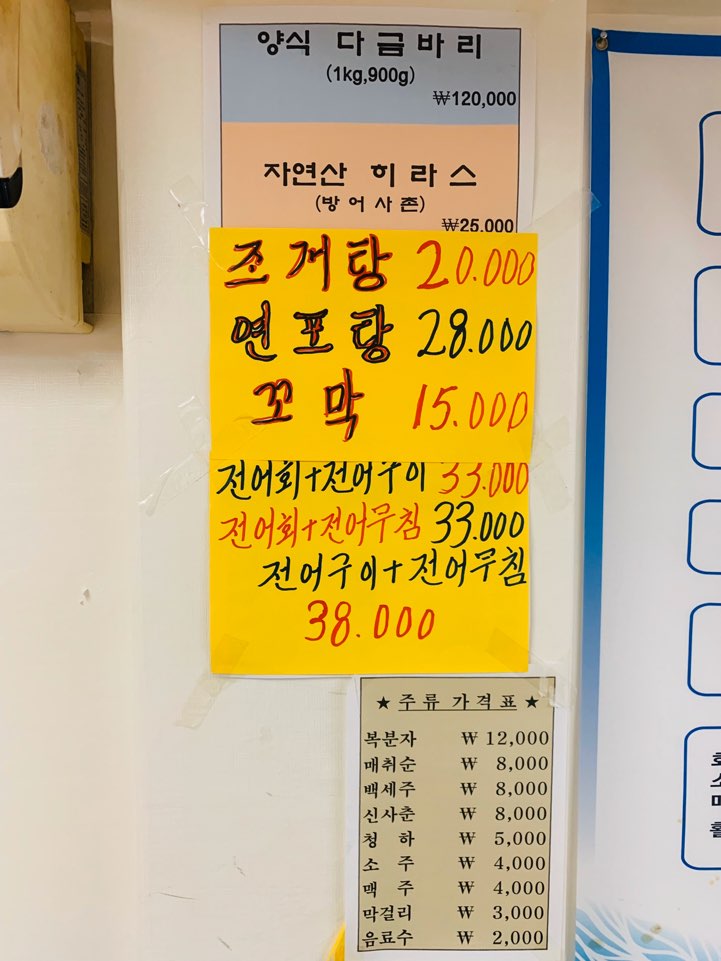 양식 다금바리
(1kg,900g)
₩120,000
자연산 히라스
(방어사촌)
₩25,000
조개탕 20.000
연포탕 28.000
꼬막 15.000
전어회+전어구이 33.000
전어회+전어무침 33.000
전어구이+전어무침
38.000
★ 주류 가격표 ★
복분자 ₩ 12,000
매취순 ₩ 8,000
백세주 ₩ 8,000
신사춘 ₩ 8,000
청 하 ₩ 5,000
소 주 ₩ 4,000
맥 주 ₩ 4,000
막걸리 ₩ 3,000
음료수 ₩ 2,000